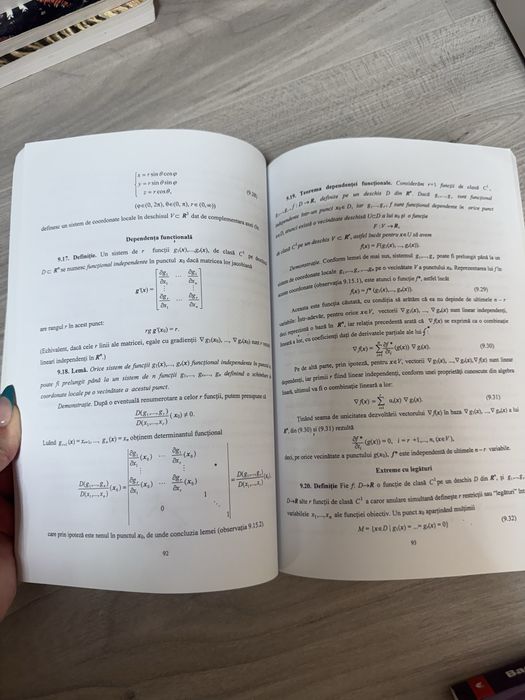 x = r sin θ cos φ
y = r sin θ sin φ
z = r cos θ,
(9.28)
(φ∈(0, 2π), θ∈(0, π), r∈(0,∞))
definesc un sistem de coordonate locale în deschisul V⊂ R³ dat de complementara unui
Dependența funcțională
9.17. Definiție. Un sistem de r funcții g₁(x),...,gᵣ(x), de clasă C¹ pe deschisul
D⊂ Rⁿ se numesc funcțional independente în punctul x₀ dacă matricea lor jacobiană
g'(x) = [∂g₁/∂x₁ ... ∂g₁/∂xₙ
⋮ ⋮
∂gᵣ/∂x₁ ... ∂gᵣ/∂xₙ]
are rangul r în acest punct:
rg g'(x₀) = r.
(Echivalent, dacă cele r linii ale matricei, egale cu gradienții ∇g₁(x₀), ..., ∇gᵣ(x₀) sunt
liniari independenți în Rⁿ.)
9.18. Lemă. Orice sistem de funcții g₁(x),..., gᵣ(x) funcțional independente în punctul x₀
poate fi prelungit până la un sistem de n funcții g₁,..., gᵣ,..., gₙ definind o schimbare de
coordonate locale pe o vecinătate a acestui punct.
Demonstrație. După o eventuală renumerotare a celor r funcții, putem presupune că
D(g₁,...,gᵣ)/D(x₁,...,xᵣ) (x₀) ≠ 0.
Luând gᵣ₊₁(x) = xᵣ₊₁,..., gₙ(x) = xₙ obținem determinantul funcțional
D(g₁,...,gₙ)/D(x₁,...,xₙ) (x₀) = |∂g₁/∂x₁ (x₀) ... ∂g₁/∂xᵣ (x₀)
⋮ ⋮ *
∂gᵣ/∂x₁ (x₀) ... ∂gᵣ/∂xᵣ (x₀)
1
0 ⋱
1| = D(g₁,...,gᵣ)/D(x₁,...,xᵣ) (x₀)
care prin ipoteză este nenul în punctul x₀, de unde concluzia lemei (observația 9.15.2)
92
9.19. Teorema dependenței funcționale. Considerăm r+1 funcții de clasă C¹,
g₁,...,gᵣ, f : D→R, definite pe un deschis D din Rⁿ. Dacă g₁,...,gᵣ sunt funcțional
independente într-un punct x₀∈D, iar g₁,...,gᵣ, f sunt funcțional dependente în orice punct
x∈D, atunci există o vecinătate deschisă U⊂D a lui x₀ și o funcție
F : V→R,
de clasă C¹ pe un deschis V⊂ Rʳ, astfel încât pentru x∈U să avem
f(x) = F(g₁(x),..., gᵣ(x)).
Demonstrație. Conform lemei de mai sus, sistemul g₁,..., gᵣ poate fi prelungit până la un
sistem de coordonate locale g₁,...,gᵣ,...,gₙ pe o vecinătate V a punctului x₀. Reprezentarea lui f în
aceste coordonate (observația 9.15.1), este atunci o funcție f*, astfel încât
f(x) = f* (g₁(x),..., gₙ(x)).
(9.29)
Aceasta este funcția căutată, cu condiția să arătăm că ea nu depinde de ultimele n – r
variabile. Într-adevăr, pentru orice x∈V, vectorii ∇g₁(x), ..., ∇gₙ(x) sunt liniar independenți,
deci reprezintă o bază în Rⁿ, iar relația precedentă arată că ∇f(x) se exprimă ca o combinație
liniară a lor, cu coeficienți dați de derivatele parțiale ale lui f*.
∇f(x) = Σ ∂f*/∂xᵢ (g(x)) ∇gᵢ(x).
(9.30)
Pe de altă parte, prin ipoteză, pentru x∈V, vectorii ∇g₁(x), ..., ∇gᵣ(x), ∇f(x) sunt liniar
dependenți, iar primii r fiind liniar independenți, conform unei proprietăți cunoscute din algebra
liniară, ultimul va fi o combinație liniară a lor:
∇f(x) = Σ αᵢ(x) ∇gᵢ(x).
(9.31)
Ținând seama de unicitatea dezvoltării vectorului ∇f(x) în baza ∇g₁(x), ..., ∇gₙ(x) a lui
Rⁿ, din (9.30) și (9.31) rezultă
∂f*/∂xᵢ (g(x)) = 0, i = r +1,..., n, (x∈V),
deci, pe orice vecinătate a punctului g(x₀), f* este independentă de ultimele n – r variabile.
Extreme cu legături
9.20. Definiție Fie f, D→R o funcție de clasă C¹ pe un deschis D din Rⁿ, și g₁,...,gᵣ,
D→R alte r funcții de clasă C¹ a căror anulare simultană definește r restricții sau "legături" între
variabilele x₁,...,xₙ ale funcției obiectiv. Un punct x₀ aparținând mulțimii
M = {x∈D | g₁(x) = ... = gᵣ(x) = 0}
(9.32)
93